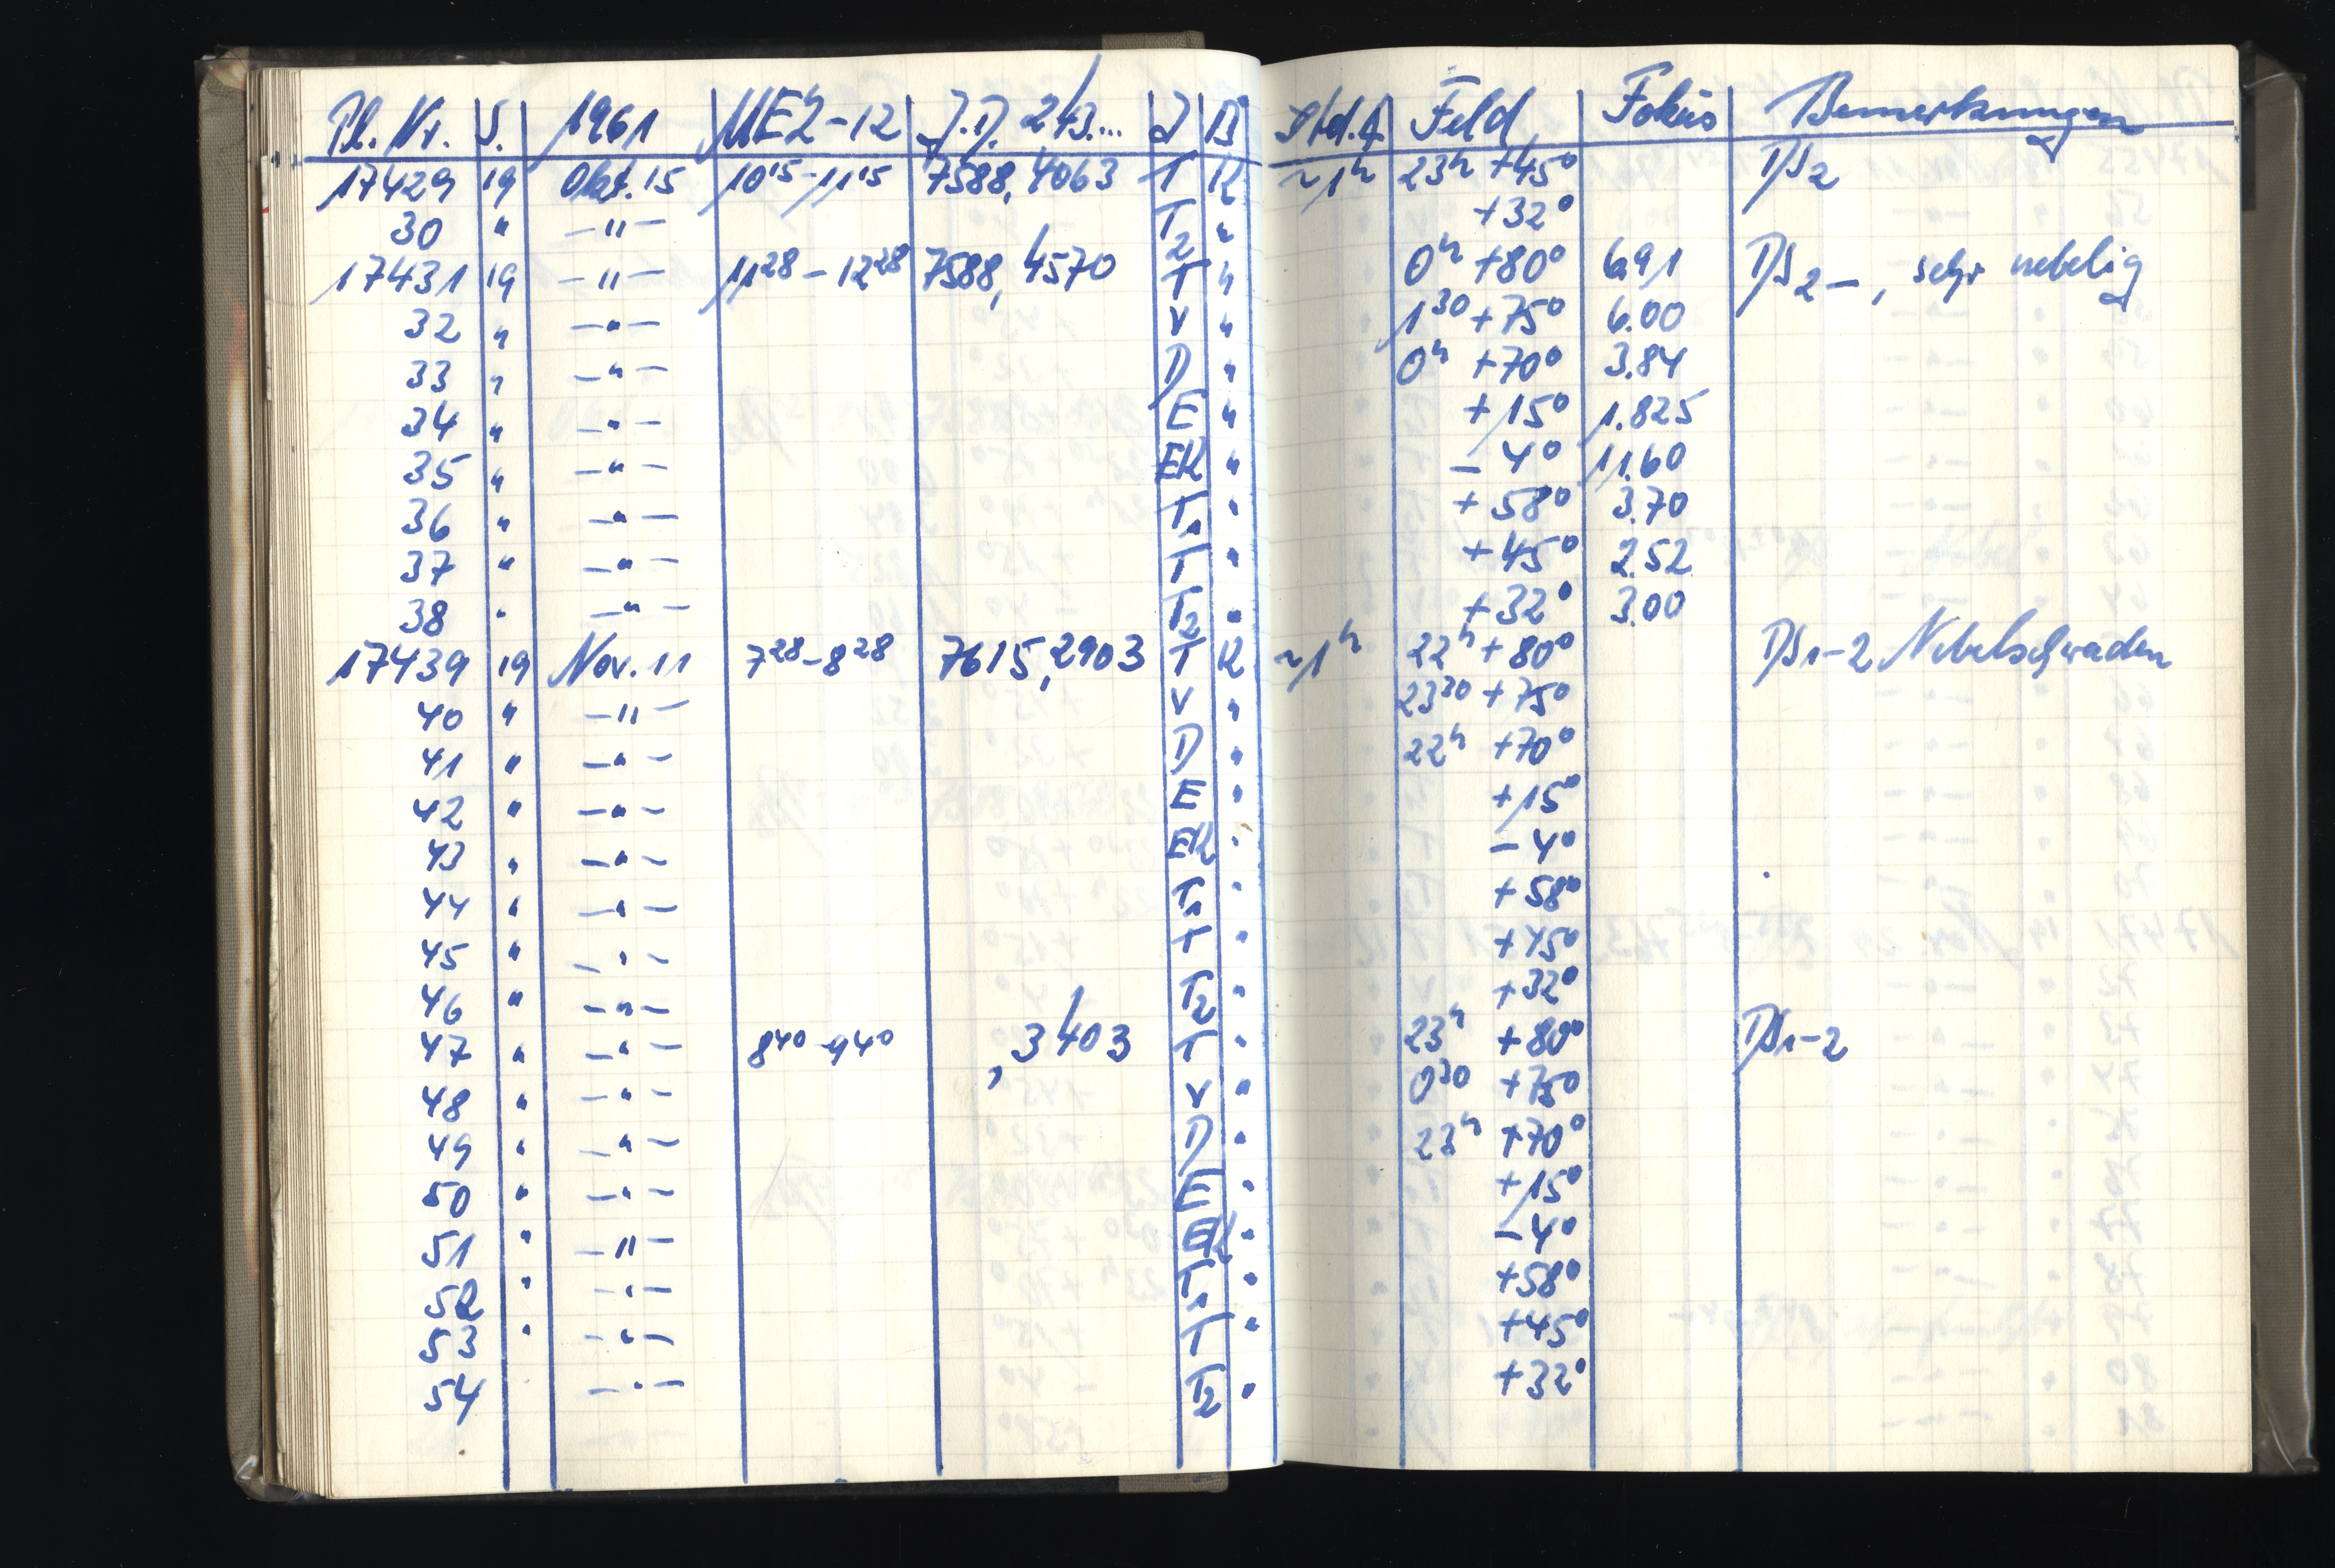 Pl. Nr. S. 1961 MEZ-12 J.D. 243... J B Std.A Feld Fokus Bemerkungen
17429 19 Okt. 15 10¹⁵-11¹⁵ 7588,4063 T K ~1ʰ 23ʰ +45° DS2
30 " -"- T2 " +32°
17431 19 -"- 11²⁸-12²⁸ 7588,4570 T " 0ʰ +80° 6.91 DS2-, sehr nebelig
32 " -"- V " 1³⁰ +75° 6.00
33 " -"- D " 0ʰ +70° 3.84
34 " -"- E " +15° 1.825
35 " -"- EK " -4° 11.60
36 " -"- T1 " +58° 3.70
37 " -"- T " +45° 2.52
38 " -"- T2 " +32° 3.00
17439 19 Nov. 11 7²⁸-8²⁸ 7615,2903 T K ~1ʰ 22ʰ +80° DS1-2 Nebelschwaden
40 " -"- V " 23³⁰ +75°
41 " -"- D " 22ʰ +70°
42 " -"- E " +15°
43 " -"- EK " -4°
44 " -"- T1 " +58°
45 " -"- T " +45°
46 " -"- T2 " +32°
47 " -"- 8⁴⁰-9⁴⁰ ,3403 T " 23ʰ +80° DS1-2
48 " -"- V " 0³⁰ +75°
49 " -"- D " 23ʰ +70°
50 " -"- E " +15°
51 " -"- EK " -4°
52 " -"- T1 " +58°
53 " -"- T " +45°
54 -"- T2 " +32°